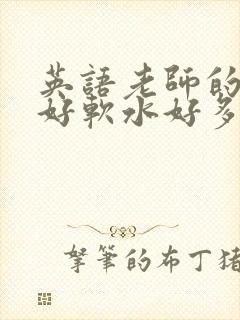 英語老師的
好軟水好多
拏筆的布丁猪